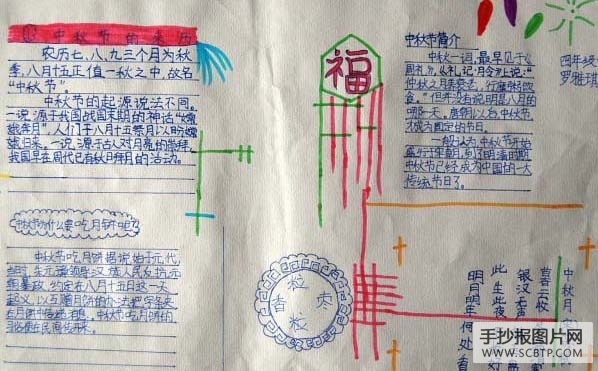 中秋节的来历
农历七、八、九三个月为秋
季，八月十五正值一秋之中，故名
“中秋节”。
中秋节的起源说法不同。
一说源于我国战国末期的神话“嫦
娥奔月”，人们于八月十五祭月以盼嫦
娥归来。一说源于古人对月亮的崇拜，
我国早在周代已有秋日拜月的活动。
中秋节为什么要吃月饼呢？
中秋节吃月饼据说始于元代，
朱元璋领导汉族人民反抗元
朝暴政，约定在八月十五这一天
起义，以互赠月饼的办法把字条夹
在月饼中传递消息。中秋节吃月饼的
习俗便在民间传开。
福
中秋节简介
中秋一词，最早见于《
周礼》。《礼记·月令》上说：“
仲秋之月养衰老，行糜粥饮
食。”但并没有说明是八月的
哪一天。唐朝以后，中秋节
才成为固定的节日。
一般认为，中秋节开始
盛行于宋朝，到了明清时期，
中秋节已经成为中国的一大
传统节日了。
四年级
罗雅琪
粒
香
粒
中秋月
暮云收
银汉无声
此生此夜
明月明年何处看
手抄报图片网
WWW.SCBTP.COM